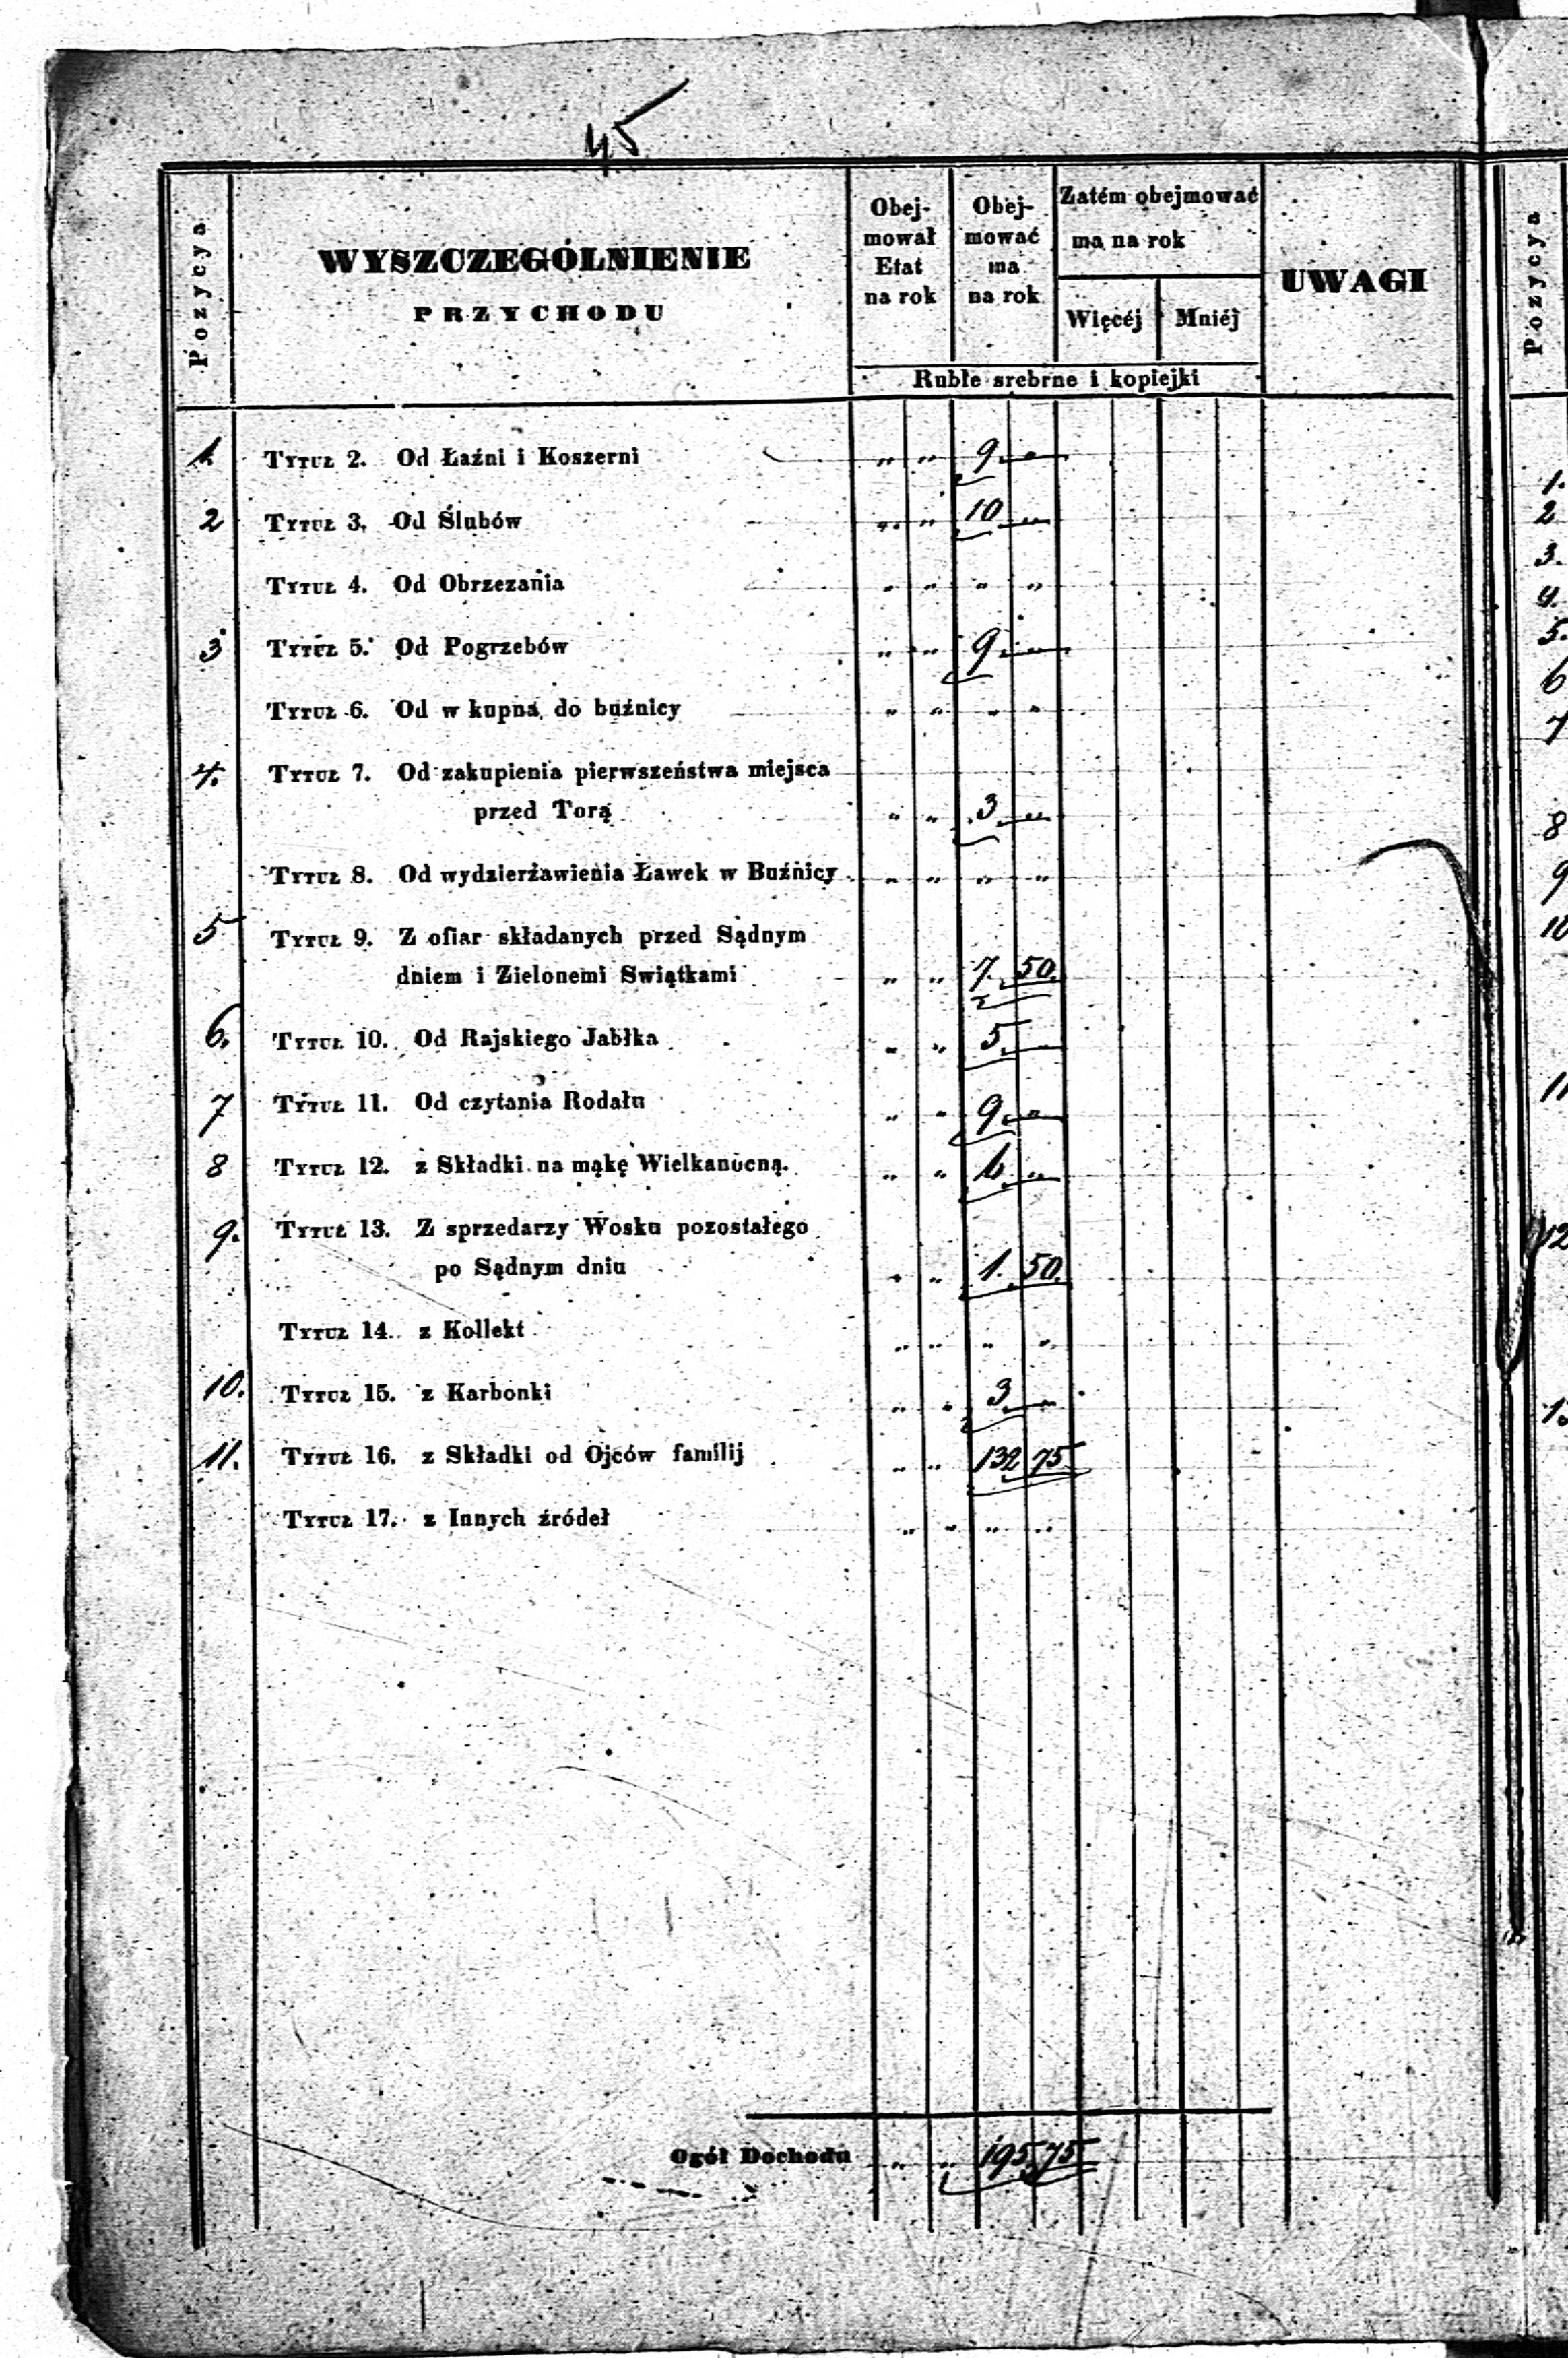 45
Pozycya
WYSZCZEGÓLNIENIE
PRZYCHODU
Obej-
mował
Etat
na rok
Obej-
mować
ma
na rok
Zatém obejmować
ma na rok
Więcéj Mniéj
Ruble srebrne i kopiejki
UWAGI
1. TYTUŁ 2. Od Łaźni i Koszerni " " 9. "
2 TYTUŁ 3. Od Ślubów " " 10 "
TYTUŁ 4. Od Obrzezania " " " "
3 TYTUŁ 5. Od Pogrzebów " " 9. "
TYTUŁ 6. Od w kupna do buźnicy " " " "
4. TYTUŁ 7. Od zakupienia pierwszeństwa miejsca
przed Torą " " 3. "
TYTUŁ 8. Od wydzierżawienia Ławek w Buźnicy " " " "
5 TYTUŁ 9. Z ofiar składanych przed Sądnym
dniem i Zielonemi Swiątkami " " 7. 50.
6. TYTUŁ 10. Od Rajskiego Jabłka " " 5. "
7 TYTUŁ 11. Od czytania Rodału " " 9. "
8 TYTUŁ 12. z Składki na mąkę Wielkanocną. " " 6. "
9. TYTUŁ 13. Z sprzedarzy Wosku pozostałego
po Sądnym dniu " " 1. 50.
TYTUŁ 14. z Kollekt " " " "
10. TYTUŁ 15. z Karbonki " " 3. "
11. TYTUŁ 16. z Składki od Ojców familij " " 132 75
TYTUŁ 17. z Innych źródeł " " " "
Ogół Dochodu " " 195 75
Pozycya
1.
2
3.
4.
5.
6
7
8
9
10
11
12